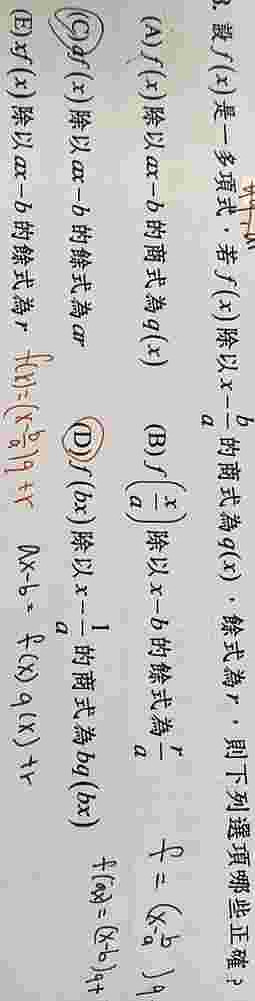 3. 設f(x)是一多項式,若f(x)除以x-b/a的商式為q(x),餘式為r,則下列選項哪些正確?
(A)f(x)除以ax-b的商式為q(x) (B)f(x/a)除以x-b的餘式為r/a
f=(x-b/a)q
(C)af(x)除以ax-b的餘式為ar (D)f(bx)除以x-1/a的商式為bq(bx)
f(ax)=(x-b)q+
(E)xf(x)除以ax-b的餘式為r
f(x)=(x-b/a)q+r
ax-b=f(x)q(x)+r